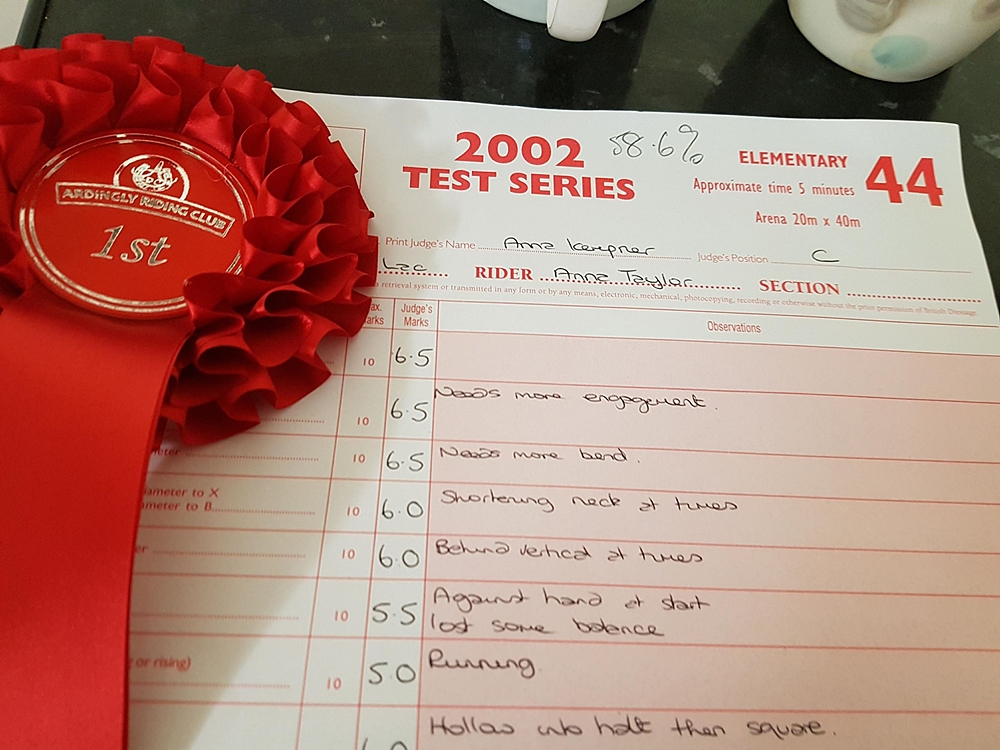 ARDINGLY RIDING CLUB
1st
2002 58.6% ELEMENTARY 44
TEST SERIES Approximate time 5 minutes
Arena 20m x 40m
Print Judge's Name Anna Judge's Position C
RIDER Anna Taylor SECTION
retrieval system or transmitted in any form or by any means, electronic, mechanical, photocopying, recording or otherwise without the prior permission of British Dressage.
Judge's Marks Observations
10 6.5
10 6.5 Needs more engagement.
10 6.5 Needs more bend.
ameter to X
ameter to B 10 6.0 Shortening neck at times
10 6.0 Behind vertical at times
10 5.5 Against hand at start
lost some balence
or rising) 10 5.0 Running.
Hollow into halt then square.